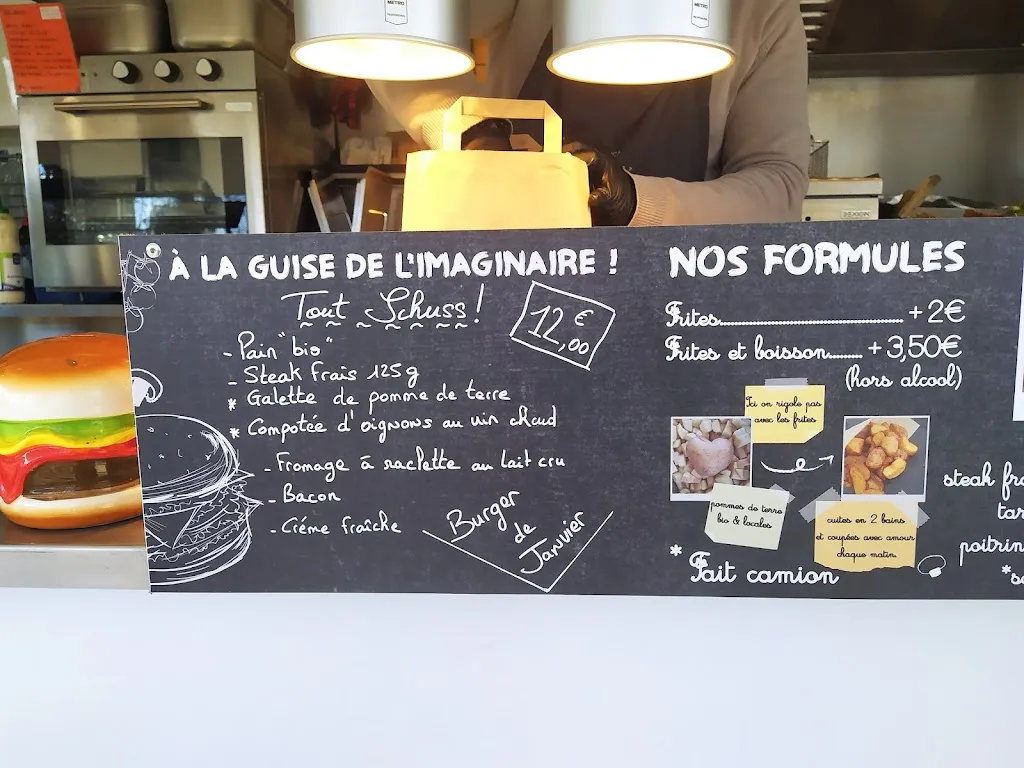 METRO
METRO
À LA GUISE DE L'IMAGINAIRE !
Tout Schuss !
12,00 €
- Pain "bio"
- Steak frais 125g
* Galette de pomme de terre
* Compotée d'oignons au vin chaud
- Fromage à raclette au lait cru
- Bacon
- Créme fraîche
Burger
de
Janvier
NOS FORMULES
Frites.......... +2€
Frites et boisson......... +3,50€
(hors alcool)
Ici on rigole pas
avec les frites
pommes de terre
bio & locales
cuites en 2 bains
et coupées avec amour
chaque matin.
* Fait camion
steak